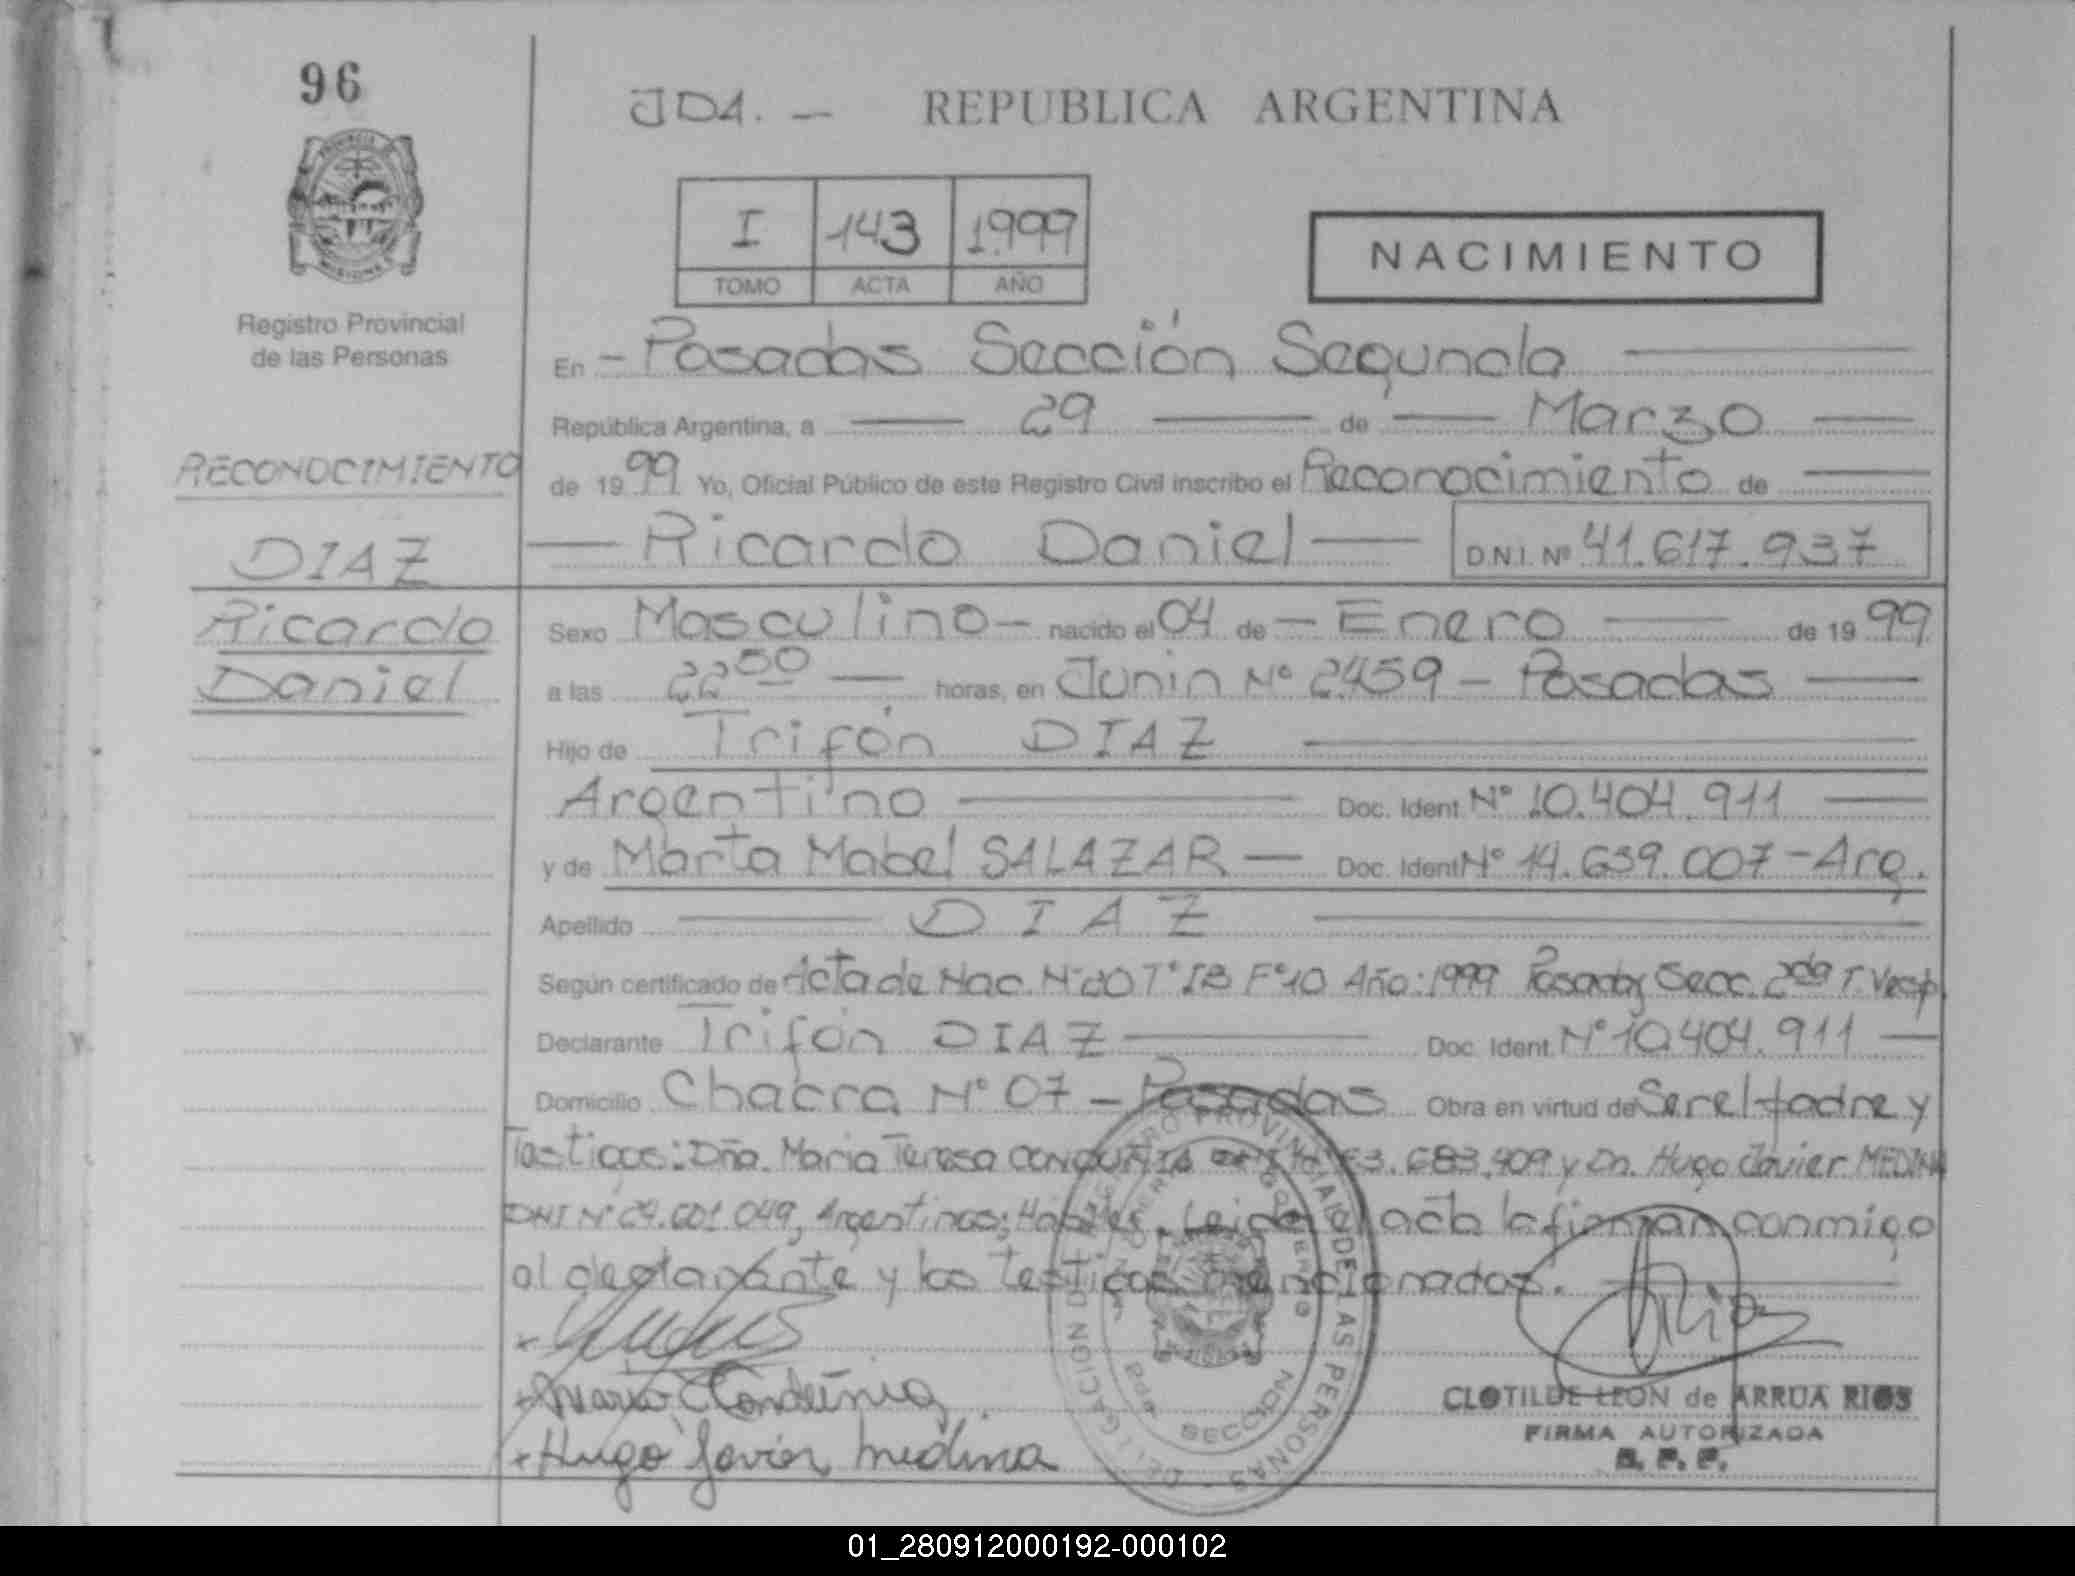 96
JDA. — REPUBLICA ARGENTINA
I 143 1999
TOMO ACTA AÑO
NACIMIENTO
Registro Provincial
de las Personas
En – Posadas Sección Segunda
República Argentina, a 29 de Marzo
de 1999 Yo, Oficial Público de este Registro Civil inscribo el Reconocimiento de
Ricardo Daniel D.N.I. Nº 41.617.937
RECONOCIMIENTO
DIAZ
Ricardo
Daniel
Sexo Masculino – nacido el 04 de – Enero de 1999
a las 22 50 horas, en Junin Nº 2459 – Posadas
Hijo de Trifón DIAZ
Argentino Doc. Ident. Nº 10.404.911
y de Marta Mabel SALAZAR — Doc. Ident Nº 14.639.007 – Arg.
Apellido DIAZ
Según certificado de Acta de Nac. Nº 20 Tº IB Fº 10 Año: 1999 Posadas Secc. 2da T. Vesp.
Declarante Trifón DIAZ Doc. Ident. Nº 10.404.911
Domicilio Chacra Nº 07 – Posadas Obra en virtud de Ser el Padre y
Testigos: Dña. Maria Teresa y Dn. Hugo Javier MEDINA
DNI Nº Argentinos; Hábiles. Leida el acta la firman conmigo
el declarante y los testigos mencionados.
Hugo Javier Medina
CLOTILDE LEON de ARRUA RIOS
FIRMA AUTORIZADA
R. P. P.
DELEGACION DEL REGISTRO PROVINCIAL DE LAS PERSONAS
SECCION
01_280912000192-000102